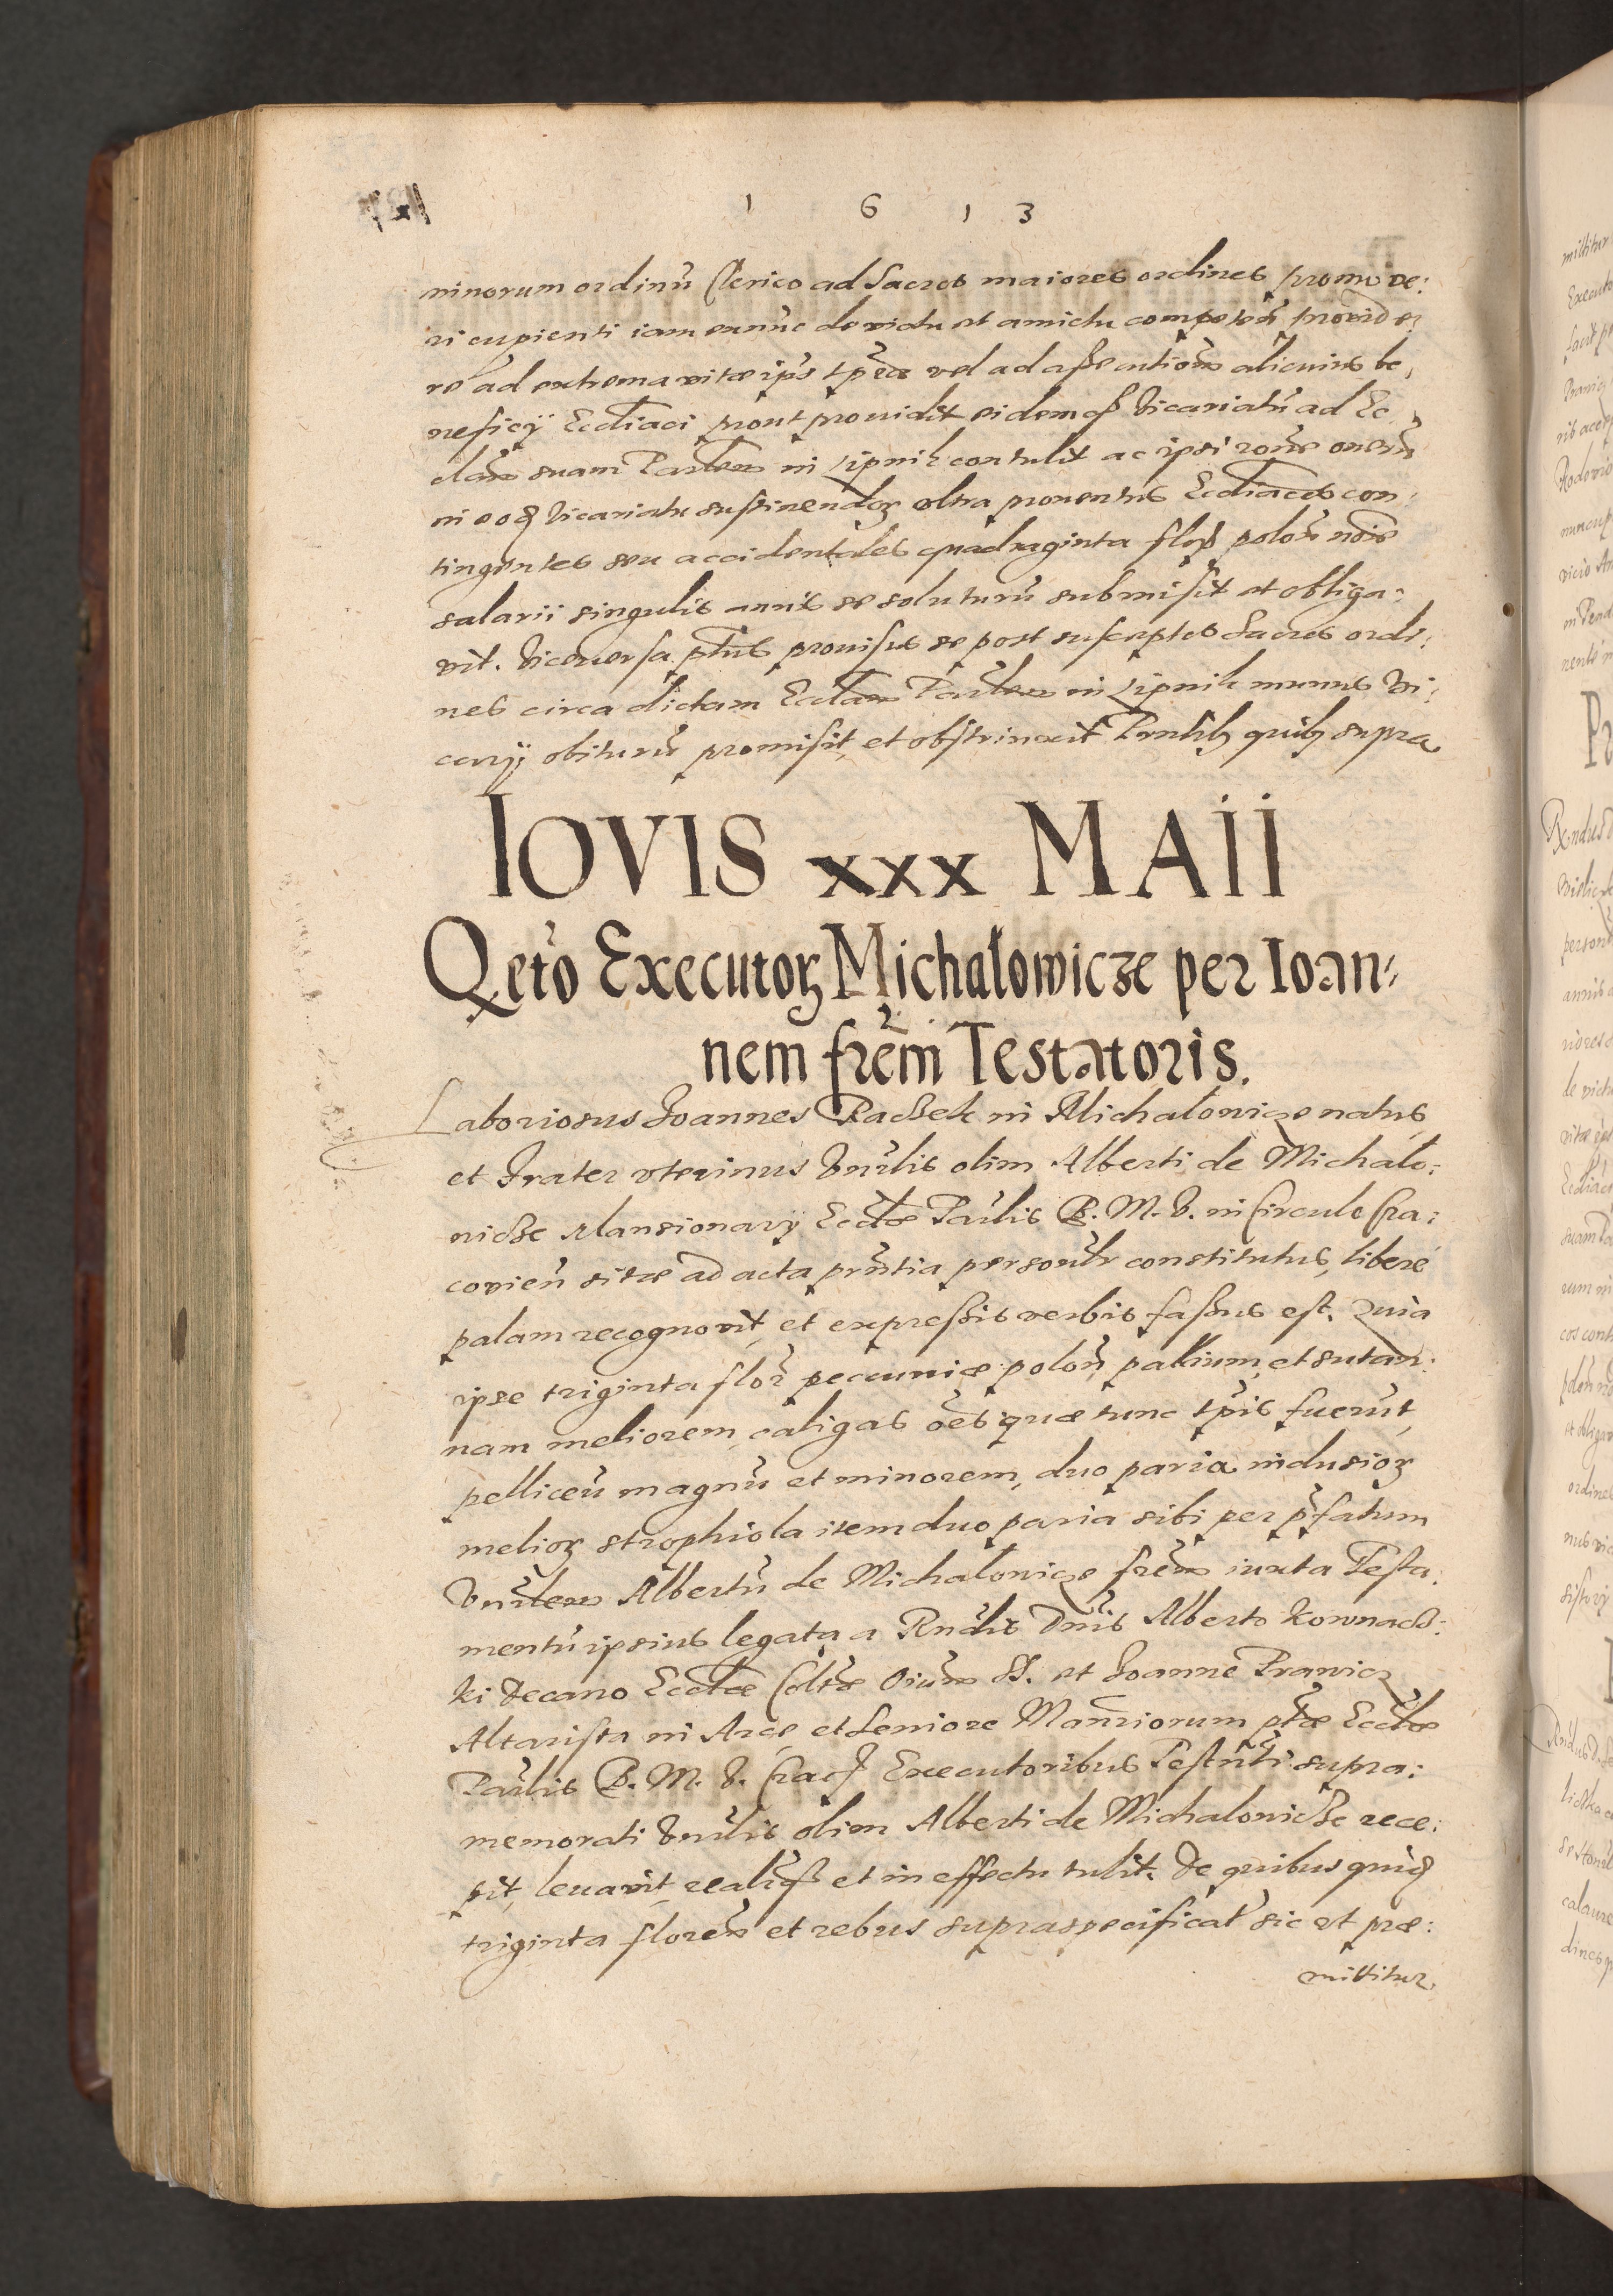 1 6 1 3
minorum ordinū Clerico ad Sacros maiores ordines promove:
ri cupienti iam exnūc de victu et amictu competeñ provide:
re ad extrema vitæ ipūs tpēa vel ad assecutionē alicuius be,
neficÿ Ecclīaci prout providit eidemq̃ Vicariatū ad Ec
clām suam Parlem in Lipnik contulit ac ipsi ronē onerū
in eoq̃ Vicariatu sustinendoꝝ ultra proventus Eccliācos con:
tingentes seu accidentales quadraginta floꝝ poloñ nōīe
salarii singulis annis se soluturū submisit et obliga:
vit. Vice versa ptūs provisus se post susceptos Sacros ordi:
nes circa dictam Ecclām Parlem in Lipnik munus Vi:
carÿ obiturū promisit, et obstrinxit Pntibꝫ quibꝫ supra
IOVIS xxx MAII
Qeto Executoꝝ Michalowicze per Ioan,
nem frēm Testatoris.
Laboriosus Joannes Raczek in Michalowicze natus
et Frater uterinus Vnrlis olim Alberti de Michalo:
wicze MansionarÿEcclæ Parlis B. M. V. in Circulo Cra:
covieñ sitæ ad acta prntia personlr constitutus, liberé
palam recognovit, et expressis verbis fassus est. Quia
ipse triginta flor̃ pecuniæ poloñ, pallium, et sutan:
nam meliorem, caligas oēs quæ tunc tpis fuerūt,
pelliceū magnū et minorem, duo paria indusioꝝ
melioꝝ strophiola item duo paria sibi per p̃fatum
Vnrlem Albertū de Michalowicze frēm iuxta Testa:
mentū ipsius legata a Rndis Dnis Alberto Kownacz:
ki Decano Ecclæ Collтæ Oiūm SS. et Joanne Franicz
Altarista in Arce, et Seniore Manriorum ptæ Ecclæ
Parlis B. M. V. Cracꝭ Executoribus Testnti supra:
memorati Vnrlis olim Alberti de Michalowicze rece:
pit, levavit, realrq̃ et in effectu tulit. De quibus quidꝫ
triginta floreñ et rebus supraspecificat̃ sic ut præ:
mittitur.